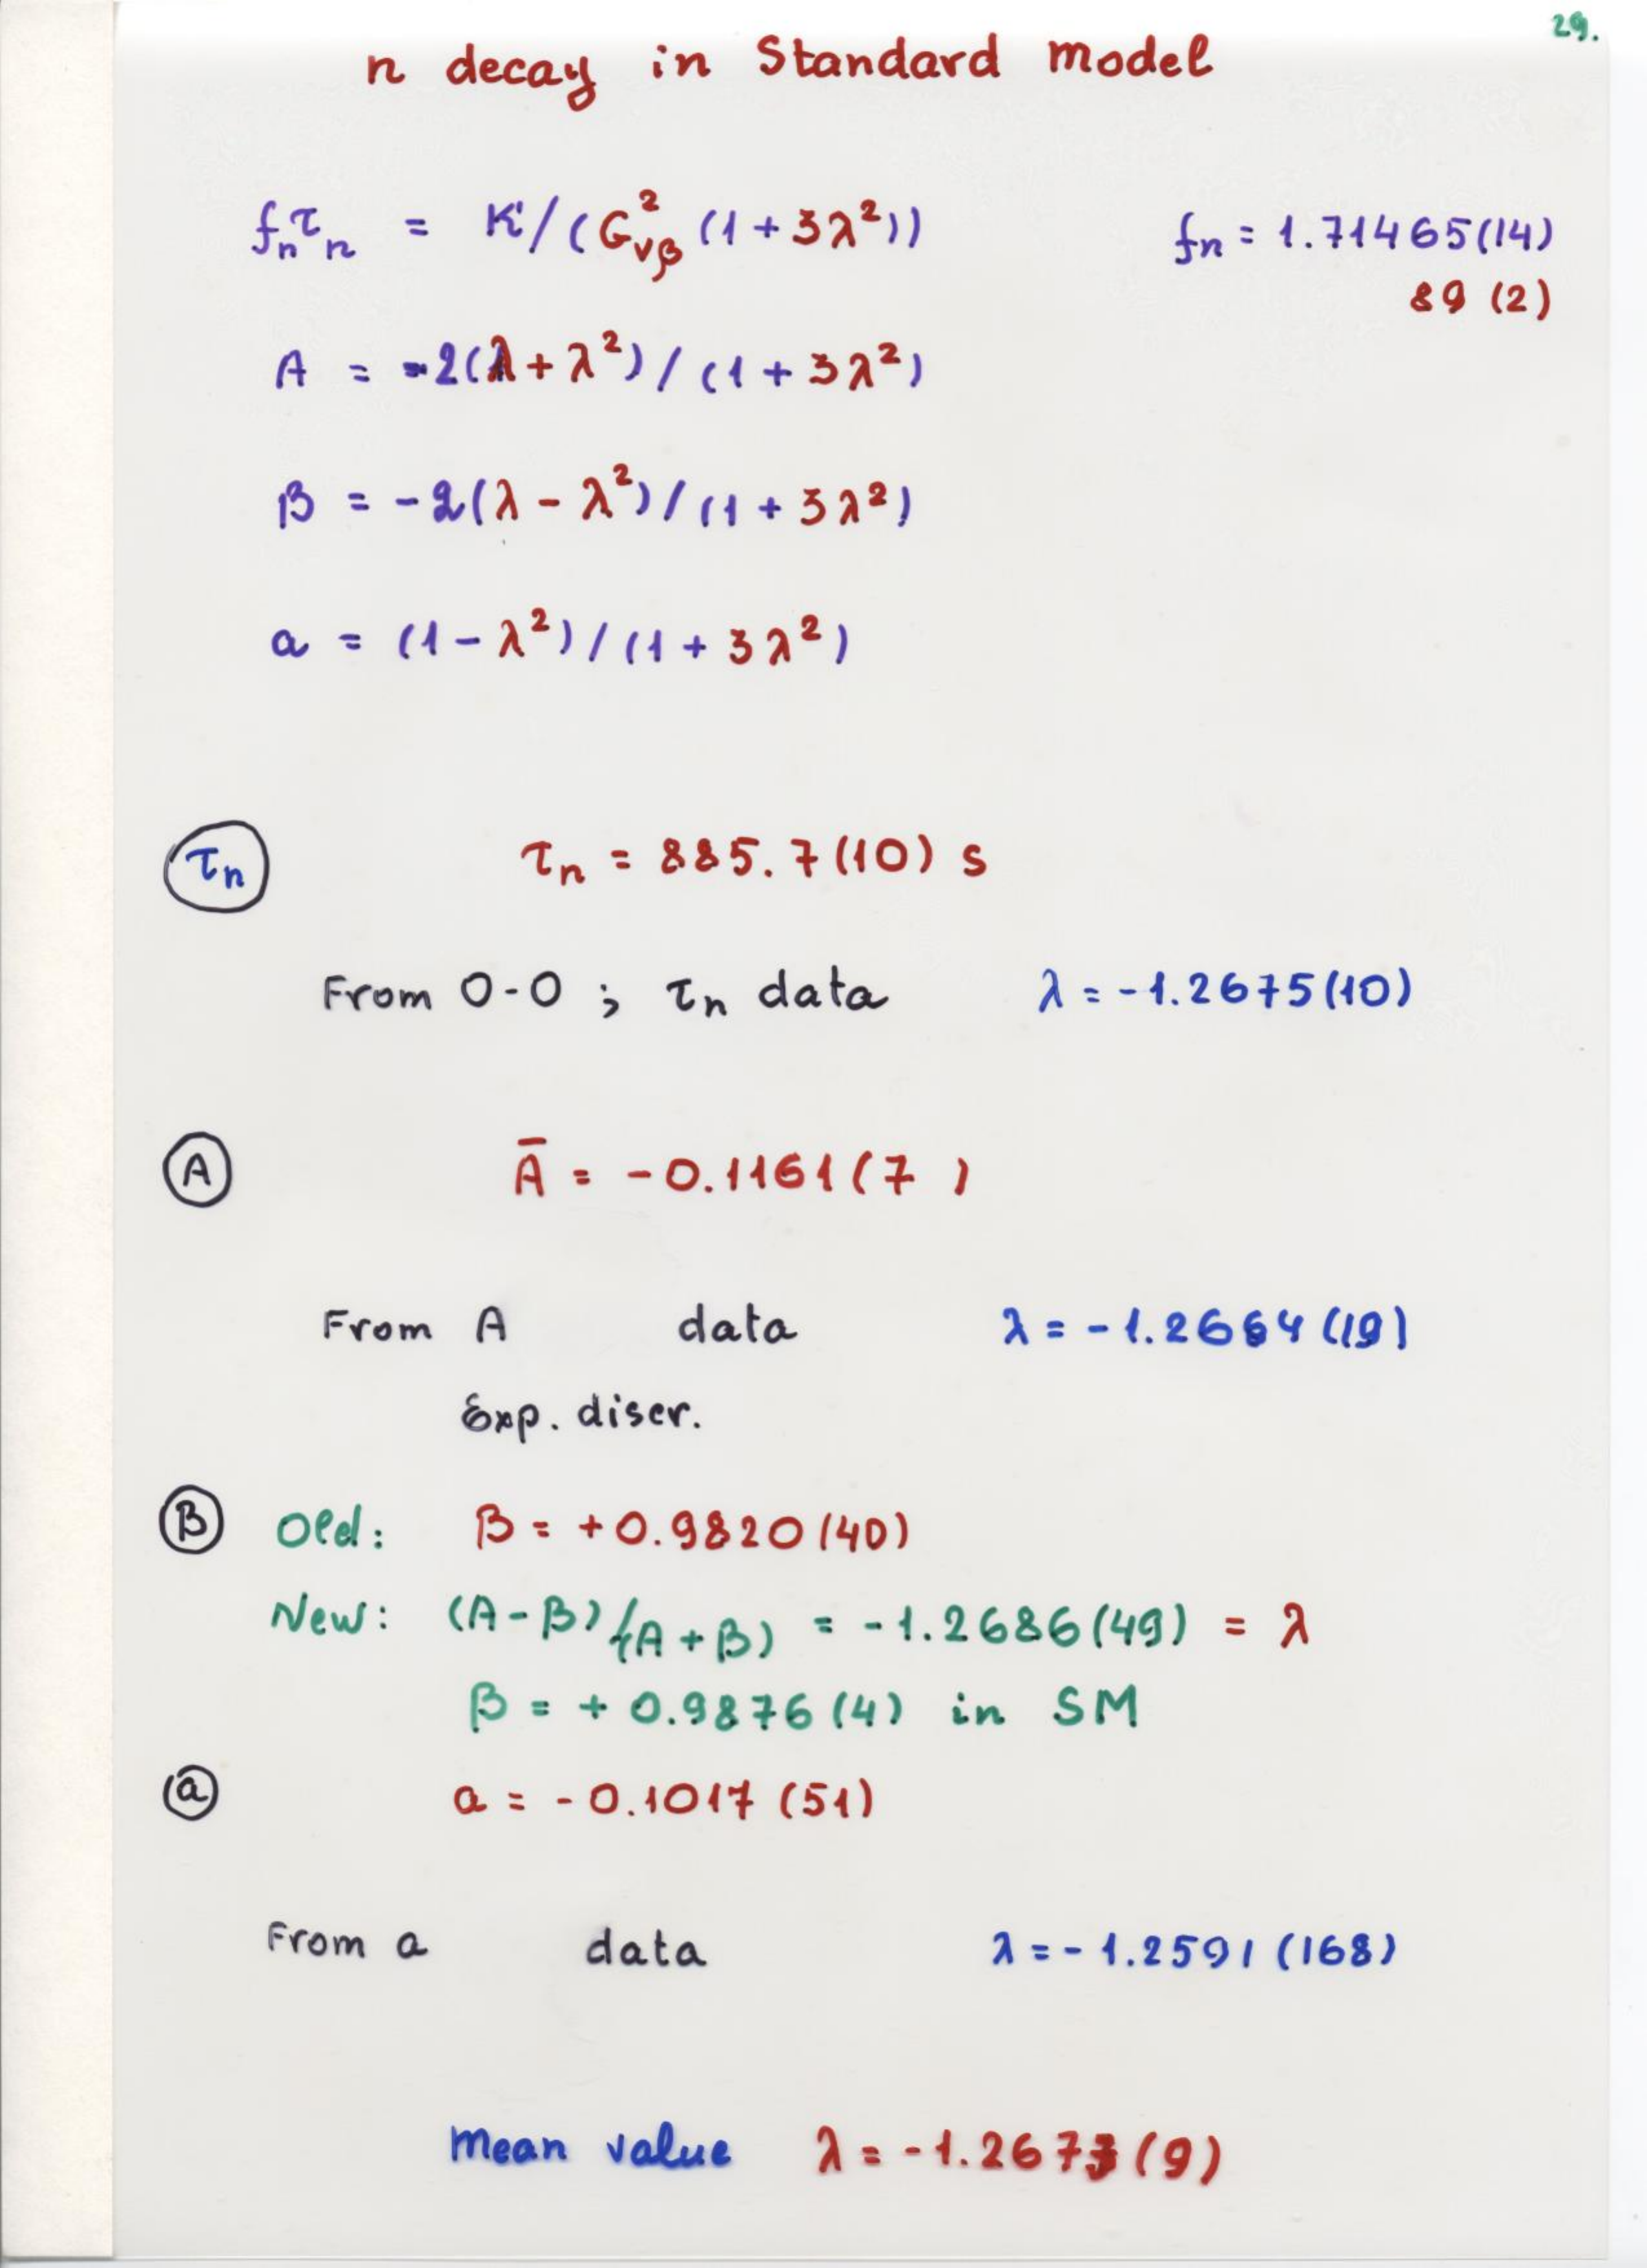 29.
n decay in Standard model
fₙτₙ = K'/(G²ᵥᵦ (1 + 3λ²)) fₙ = 1.71465(14)
89 (2)
A = -2(λ + λ²) / (1 + 3λ²)
B = -2(λ - λ²) / (1 + 3λ²)
a = (1 - λ²) / (1 + 3λ²)
τₙ τₙ = 885.7(10) s
From 0-0 ; τₙ data λ = -1.2675(10)
A Ā = -0.1161(7 )
From A data λ = -1.2664(19)
Exp. discr.
B Old: B = +0.9820(40)
New: (A-B)/(A+B) = -1.2686(49) = λ
B = + 0.9876(4) in SM
a a = -0.1017 (51)
From a data λ = -1.2591 (168)
Mean value λ = -1.2673 (9)